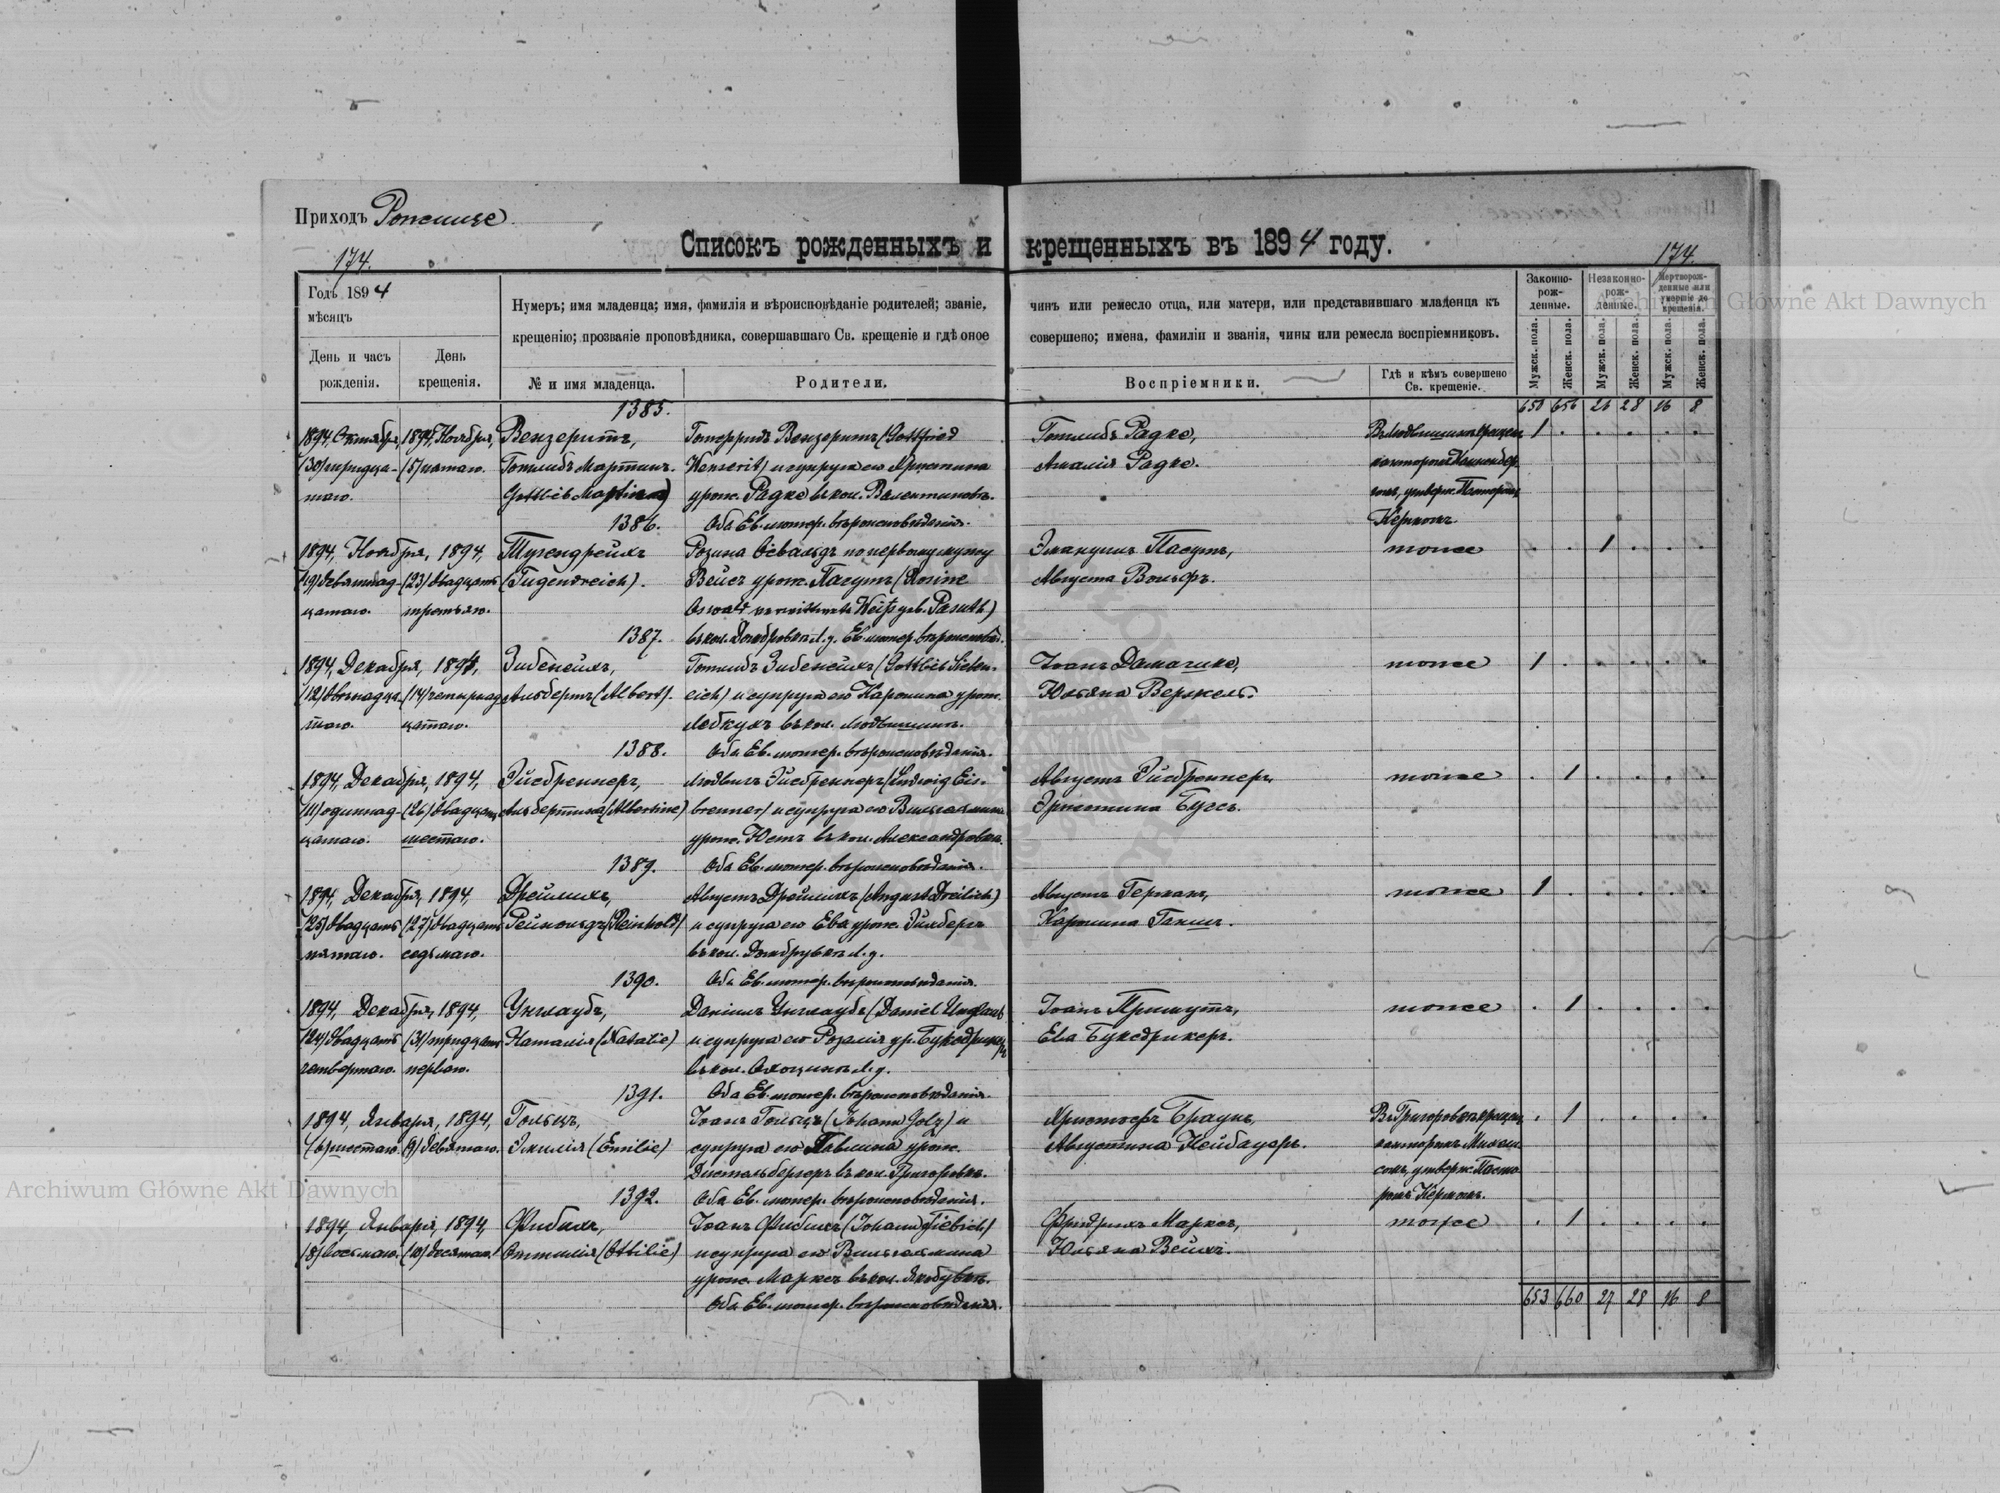 Приходъ Ропсище
Списокъ рожденныхъ и крещенныхъ въ 1894 году.
174.
174.
Годъ 1894
мѣсяцъ
День и часъ рожденія.
День крещенія.
Нумеръ; имя младенца; имя, фамилія и вѣроисповѣданіе родителей; званіе,
крещенію; прозваніе проповѣдника, совершавшаго Св. крещеніе и гдѣ оное
№ и имя младенца.
Родители.
чинъ или ремесло отца, или матери, или представившаго младенца къ
совершено; имена, фамиліи и званія, чины или ремесла воспріемниковъ.
Воспріемники.
Гдѣ и кѣмъ совершено
Св. крещеніе.
Законно-
рож-
денные.
Незаконно-
рож-
денные.
Мертворож-
денные или
умершіе до
крещенія.
Мужск. пола.
Женск. пола.
Мужск. пола.
Женск. пола.
Мужск. пола.
Женск. пола.
650 656 26 28 16 8
1385.
1894, Октября, 1894, Ноября,
(30) тридца- (5) пятаго.
таго.
Вензеритъ,
Готлибъ Мартинъ.
Gottlieb Martin
Готфридъ Вензеритъ (Gottfried
Wenserit) и супруга его
урож. Радке въ кол. Валентиновъ.
Оба Ев. лютер. вѣроисповѣданія.
Готлибъ Радке,
Амалія Радке.
1
1386.
1894, Ноября, 1894,
(19) девятнад- (23) двадцать
цатаго. третьяго.
Тугендрейхъ
(Tugendreich).
Розина Освальдъ по первому мужу
Вейсъ урож. Пасутъ (Rosine
Oswald verwittwete Weiß geb. Pasuth)
въ кол. Домбровка Л. д. Ев. лютер. вѣроисповѣд.
Эмануилъ Пасутъ,
Августа Вольфъ.
тоже
1
1387.
1894, Декабря, 1894,
(12) двѣнадца- (14) четырнад-
таго. цатаго.
Зибенейхъ,
Альбертъ (Albert).
Готлибъ Зибенейхъ (Gottlieb Sieben-
eich) и супруга его Каролина урож.
Лебкухъ въ кол. Людвишинъ.
Іоанъ Дамачике,
Юльяна Вержель.
тоже
1
1388.
Оба Ев. лютер. вѣроисповѣданія.
1894, Декабря, 1894,
(11) одиннад- (26) двадцать
цатаго. шестаго.
Эйсбреннеръ,
Альбертина (Albertine)
Людвигъ Эйсбреннеръ (Ludwig Eis-
brenner) и супруга его Вильгельмина
урож. Юстъ въ кол. Александровка.
Августъ Эйсбреннеръ,
Эрнстина Буссъ.
тоже
1
1389.
Оба Ев. лютер. вѣроисповѣданія.
1894, Декабря, 1894,
(25) двадцать (27) двадцать
пятаго. седьмаго.
Дрейлихъ,
Рейнольдъ (Reinhold)
Августъ Дрейлихъ (August Dreilich)
и супруга его Ева урож.
въ кол. Домбрувка Л. д.
Августъ Германъ,
Каролина
тоже
1
1390.
Оба Ев. лютер. вѣроисповѣданія.
1894, Декабря, 1894,
(24) двадцать (31) тридцать
четвертаго. перваго.
Унглаубъ,
Наталія (Natalie)
Даніилъ Унглаубъ (Daniel Unglaub
и супруга его Розалія ур. Буксдрикеръ
Іоанъ
Ева Буксдрикеръ.
тоже
1
1391.
Оба Ев. лютер. вѣроисповѣданія.
1894, Января, 1894,
(6) шестаго. (9) девятаго.
Гольцъ,
Эмилія (Emilie)
Іоанъ Гольцъ (Johann Golz) и
супруга его Павлина урож.
въ кол. Григоровка.
Христофъ Браунъ,
Августина Нейбауэръ.
Въ Григоровкѣ крещенъ
утверж. Пасто-
ромъ Керномъ.
1
1392.
Оба Ев. лютер. вѣроисповѣданія.
1894, Января, 1894,
(8) восьмаго. (10) десятаго.
Фибихъ,
Оттилія (Ottilie)
Іоанъ Фибихъ (Johann Fiebich)
и супруга его Вильгельмина
урож. Марксъ въ кол. Якобувка.
Оба Ев. лютер. вѣроисповѣданія.
Фридрихъ Марксъ,
Юльяна Вейхъ.
тоже
1
653 660 27 28 16 8
Archiwum Główne Akt Dawnych
Archiwum Główne Akt Dawnych